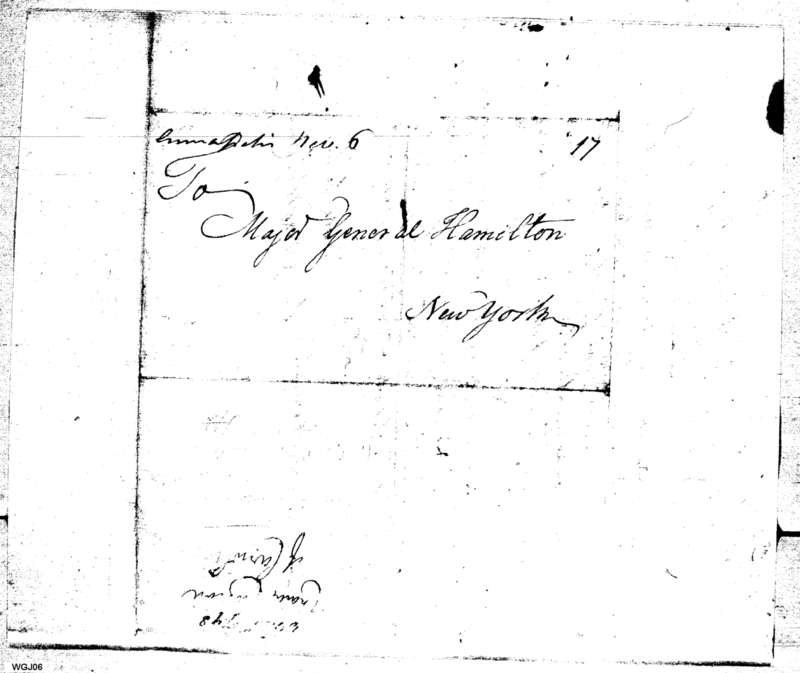 Annapolis Nov. 6 17
To
Major General Hamilton
New York
WGJ06